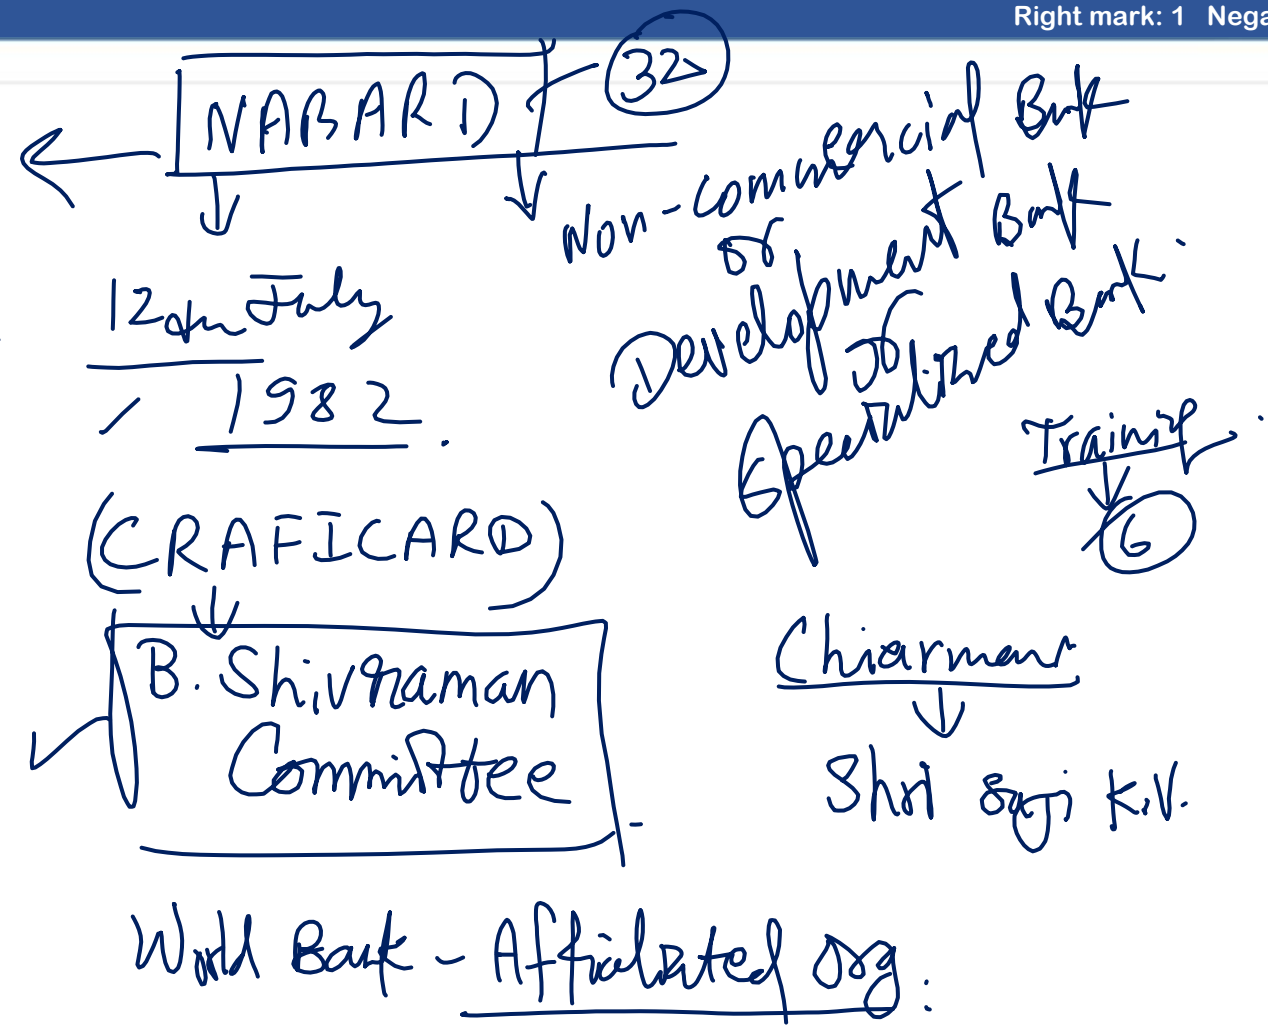 Right mark: 1 Nega
NABARD
32
Non-commercial Bank
or
Development Bank
or
Specialized Bank.
12th July
1982.
Training
6
(CRAFICARD)
B. Shivraman
Committee
Chiarman
Shri Saji K.V.
World Bank - Affialiated Org.